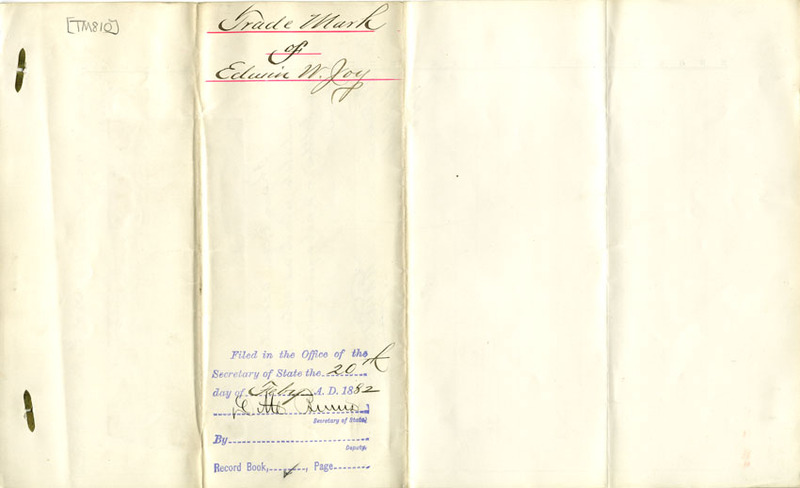 [TM810]
Trade Mark
of
Edwin W. Joy
Filed in the Office of the
Secretary of State the 20th
day of Feby A. D. 1882
Secretary of State.
By
Deputy.
Record Book, , Page